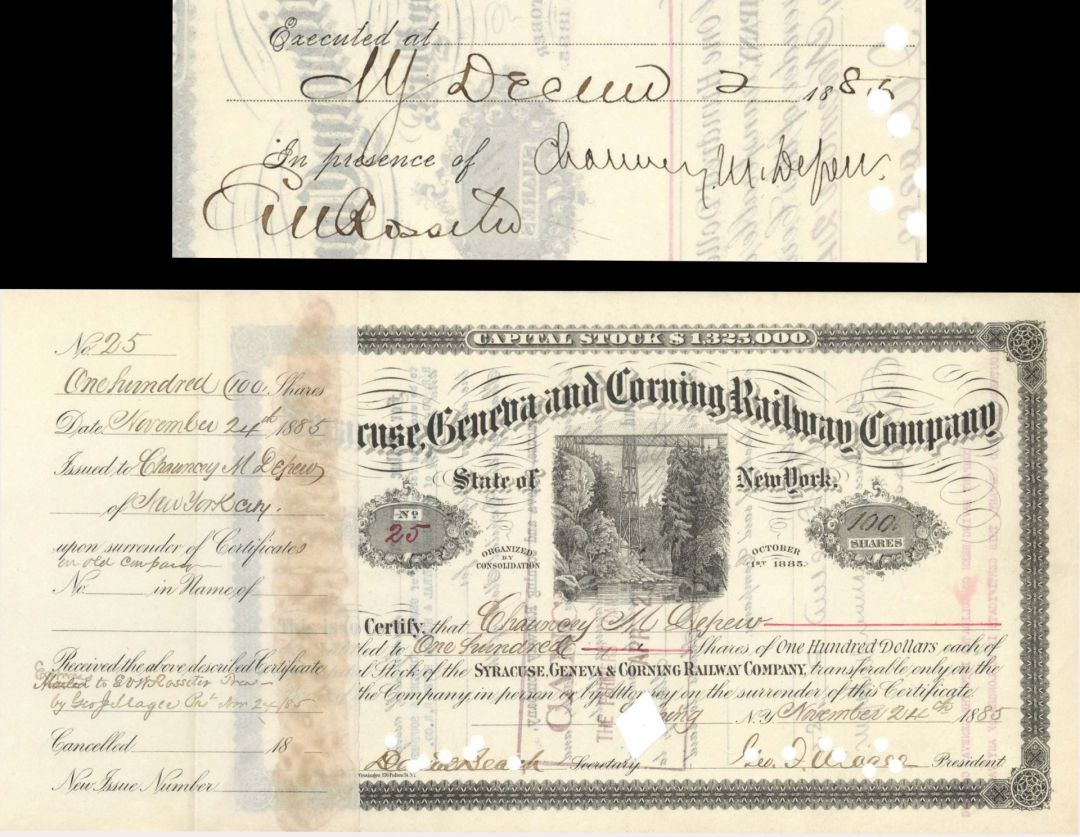 Executed at
NY Decem 2 1885
In presence of Chauncey M. Depew.
EVWRossiter
No. 25
One hundred (100) Shares
Date, November 24th 1885
Issued to Chauncey M Depew
of New York City.
upon surrender of Certificates
in old company
No. in Name of
Received the above described Certificate
Mailed to EVWRossiter Treas
by Geo J Magee Pres Nov 24/85
Cancelled 18
New Issue Number
CAPITAL STOCK $1325,000.
cuse, Geneva and Corning Railway Company
State of New York.
No 25
ORGANIZED BY CONSOLIDATION
OCTOBER 1ST 1885.
100. SHARES
This is to Certify, that Chauncey M Depew
led to One hundred Shares of One Hundred Dollars each of
al Stock of the SYRACUSE, GENEVA & CORNING RAILWAY COMPANY, transferable only on the
of the Company, in person or by Attorney on the surrender of this Certificate.
ning N.Y. November 24th 1885
Daniel Beach Secretary Geo. J. Magee President